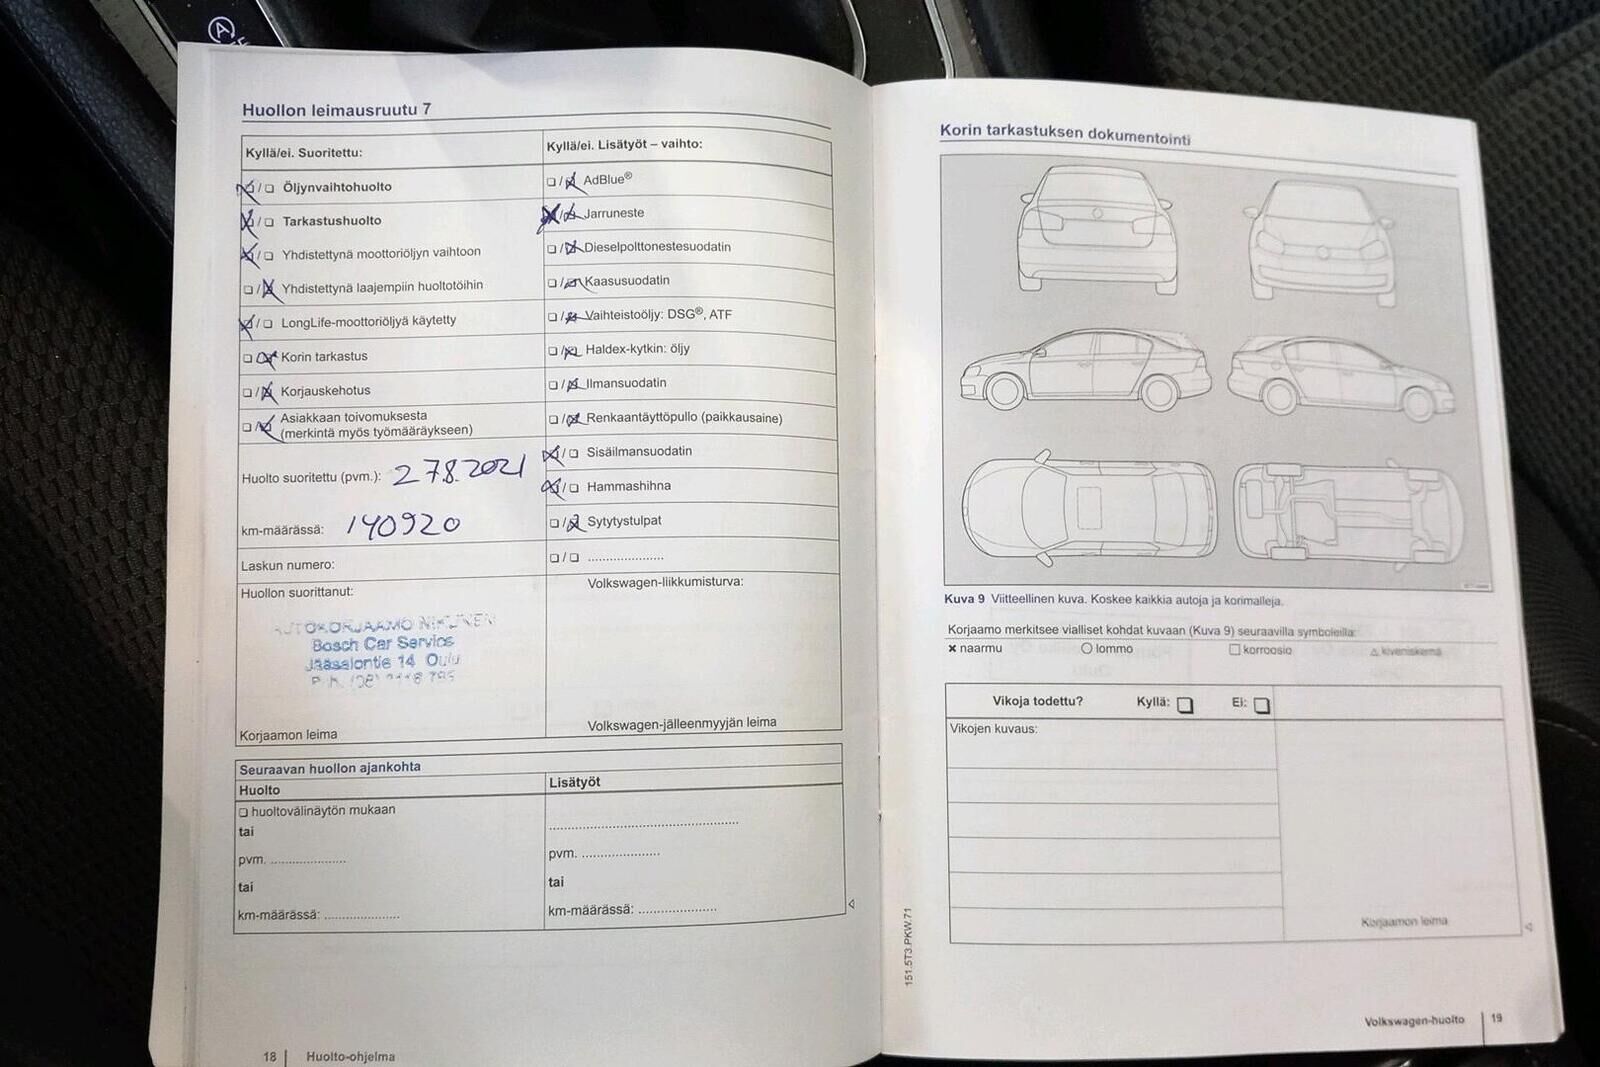 A
Huollon leimausruutu 7
Kyllä/ei. Suoritettu:
☒/☐ Öljynvaihtohuolto
☒/☐ Tarkastushuolto
☒/☐ Yhdistettynä moottoriöljyn vaihtoon
☐/☒ Yhdistettynä laajempiin huoltotöihin
☒/☐ LongLife-moottoriöljyä käytetty
☐/☒ Korin tarkastus
☐/☒ Korjauskehotus
☐/☒ Asiakkaan toivomuksesta
(merkintä myös työmääräykseen)
Huolto suoritettu (pvm.): 27.8.2021
km-määrässä: 140920
Laskun numero:
Huollon suorittanut:
AUTOKORJAAMO
Bosch Car Service
Jääsalontie 14 Oulu
Korjaamon leima
Kyllä/ei. Lisätyöt – vaihto:
☐/☒ AdBlue®
☒/☒ Jarruneste
☐/☒ Dieselpolttonestesuodatin
☐/☒ Kaasusuodatin
☐/☒ Vaihteistoöljy: DSG®, ATF
☐/☒ Haldex-kytkin: öljy
☐/☒ Ilmansuodatin
☐/☒ Renkaantäyttöpullo (paikkausaine)
☒/☐ Sisäilmansuodatin
☒/☐ Hammashihna
☐/☒ Sytytystulpat
☐/☐ ......................
Volkswagen-liikkumisturva:
Volkswagen-jälleenmyyjän leima
Seuraavan huollon ajankohta
Huolto
☐ huoltovälinäytön mukaan
tai
pvm. ......................
tai
km-määrässä: ......................
Lisätyöt
......................................................
pvm. ......................
tai
km-määrässä: ......................
18 | Huolto-ohjelma
Korin tarkastuksen dokumentointi
Kuva 9 Viitteellinen kuva. Koskee kaikkia autoja ja korimalleja.
Korjaamo merkitsee vialliset kohdat kuvaan (Kuva 9) seuraavilla symboleilla:
× naarmu ○ lommo ☐ korroosio △ kiveniskemä
Vikoja todettu? Kyllä: ☐ Ei: ☐
Vikojen kuvaus:
Korjaamon leima
151.5T3.PKW.71
Volkswagen-huolto | 19